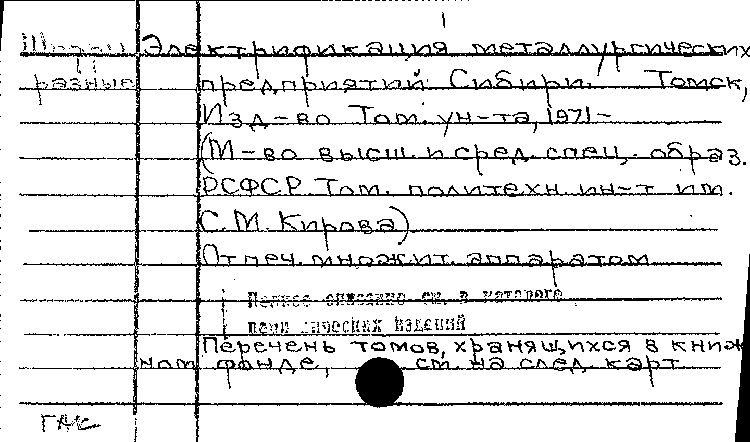 Шифры Электрификация металлургических
разные предприятий Сибири. Томск,
Изд-во Том. ун-та, 1971-
(М-во высш. и сред. спец. образ.
РСФСР. Том. политехн. ин-т им.
С.М. Кирова)
Отпеч. множит. аппаратом
Полное описание см. в каталоге
периодических изданий
Перечень томов, хранящихся в книж
ном фонде, см. на след. карт.
ГАК